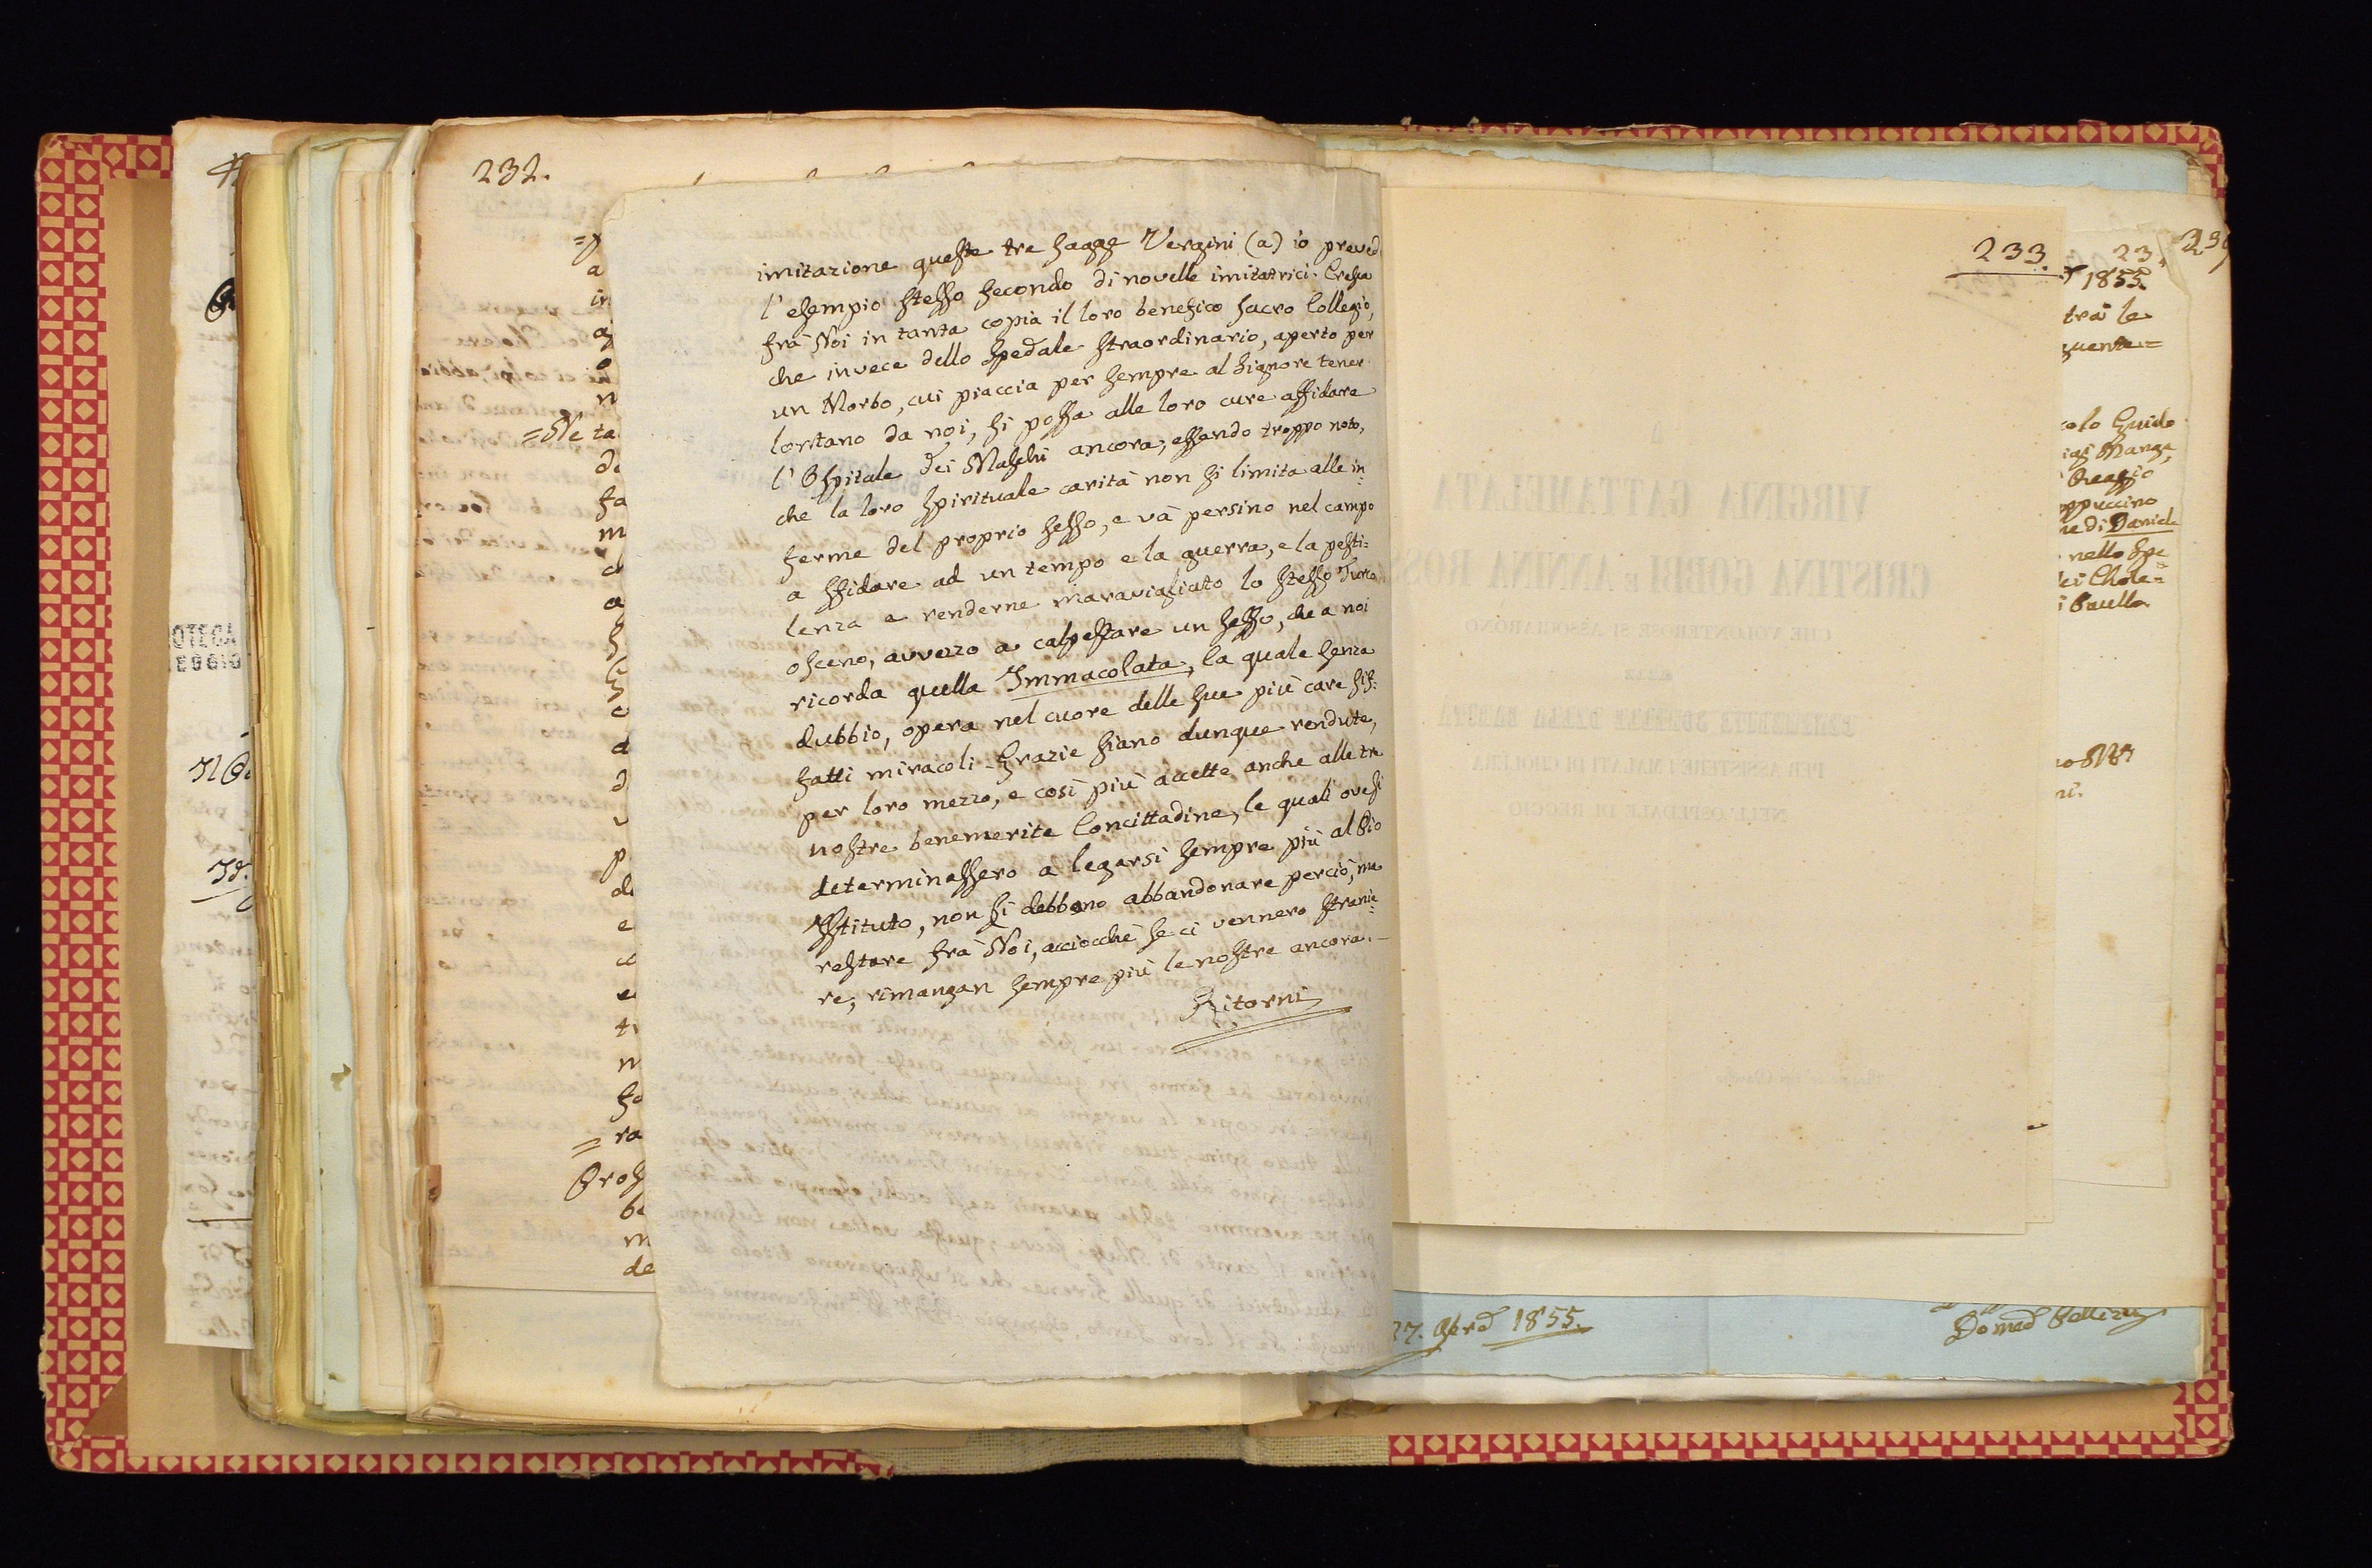 232.
imitazione queste tre sagge Vergini (a) io preved
l'esempio stesso secondo di novelle imitatrici. Cresca
frà Noi in tanta copia il loro benefico sacro Collegio,
che invece dello Spedale straordinario, aperto per
un Morbo, cui piaccia per sempre al Signore tener
lontano da noi, si possa alle loro cure affidare
l'Ospitale dei Maschi ancora; essendo troppo noto,
che la loro spirituale carità non si limita alle in=
ferme del proprio sesso, e và persino nel campo
a sfidare ad un tempo e la guerra, e la pesti=
lenza e renderne maravigliato lo stesso Turco
osceno, avvezzo a calpestare un sesso, che a noi
ricorda quella Immacolata, la quale senza
dubbio, opera nel cuore delle sue più care sif=
fatti miracoli. Grazie siano dunque rendute,
per loro mezzo, e così più accette anche alle tre
nostre benemerite Concittadine, le quali ove si
determinassero a legarsi sempre più al Pio
Istituto, non si debbano abbandonare perciò, ma
restare frà Noi, acciocchè se ci vennero stranie=
re, rimangan sempre più le nostre ancora. —
Ritorni
=Ne ta
de
fa
ra
be
de
OTECA
EGGIO
233.
VIRGINIA GATTAMELATA
CRISTINA GOBBI E ANNINA ROS
CHE VOLONTEROSE SI ASSOCIARONO
ALLE
BENEMERITE SORELLE DELLA CARITÀ
PER ASSISTERE I MALATI DI CHOLERA
NELL'OSPEDALE DI REGGIO
23
239
1855.
trà le
guente=
colo Guido
Reggio
appuccino
ne di Daniele
nello Spe=
ei Chole=
27. 1855.